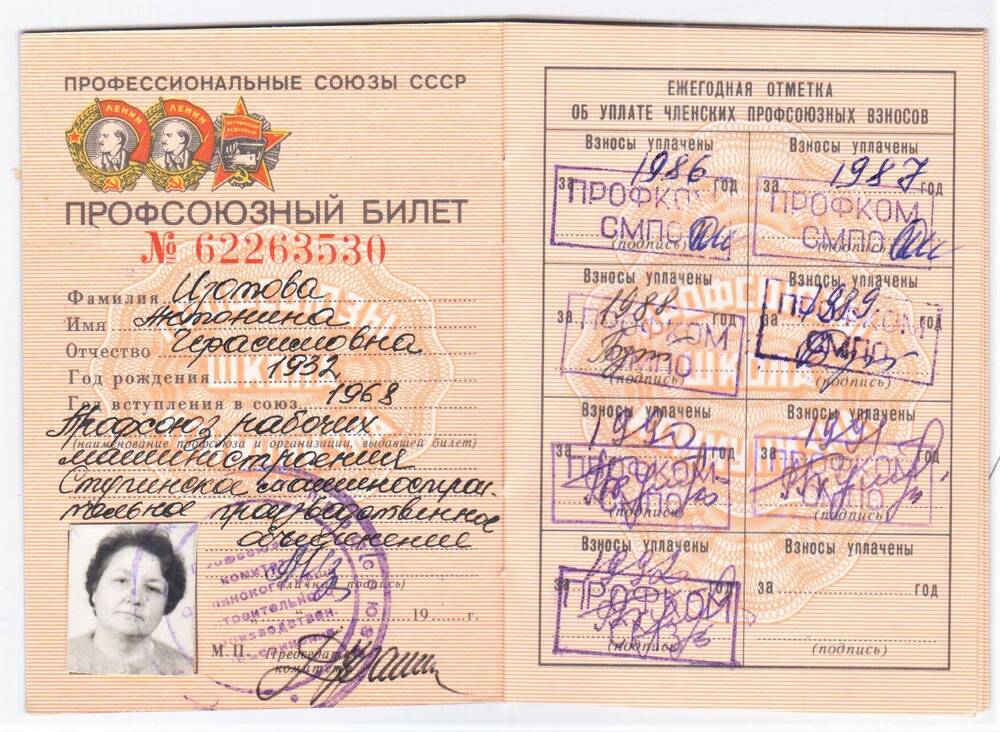 ПРОФЕССИОНАЛЬНЫЕ СОЮЗЫ СССР
ЛЕНИН ЛЕНИН
ПРОФСОЮЗНЫЙ БИЛЕТ
№ 62263530
Фамилия Изотова
Имя Антонина
Отчество Герасимовна
Год рождения 1932
Год вступления в союз 1968
Профсоюз рабочих
(наименование профсоюза и организации, выдавшей билет)
машиностроения
Ступинское машинострои-
тельное производственное
объединение
(личная подпись)
19 г.
М.П. Председатель
комитета
ЕЖЕГОДНАЯ ОТМЕТКА
ОБ УПЛАТЕ ЧЛЕНСКИХ ПРОФСОЮЗНЫХ ВЗНОСОВ
Взносы уплачены
за 1986 год
ПРОФКОМ
СМПО
(подпись)
Взносы уплачены
за 1987 год
ПРОФКОМ
СМПО
(подпись)
Взносы уплачены
за 1988 год
ПРОФКОМ
СМПО
(подпись)
Взносы уплачены
1989 год
ПРОФКОМ
СМПО
(подпись)
Взносы уплачены
за 1990 год
ПРОФКОМ
СМПО
(подпись)
Взносы уплачены
за 1991 год
ПРОФКОМ
СМПО
(подпись)
Взносы уплачены
за 1992 год
ПРОФКОМ
(подпись)
Взносы уплачены
за год
(подпись)